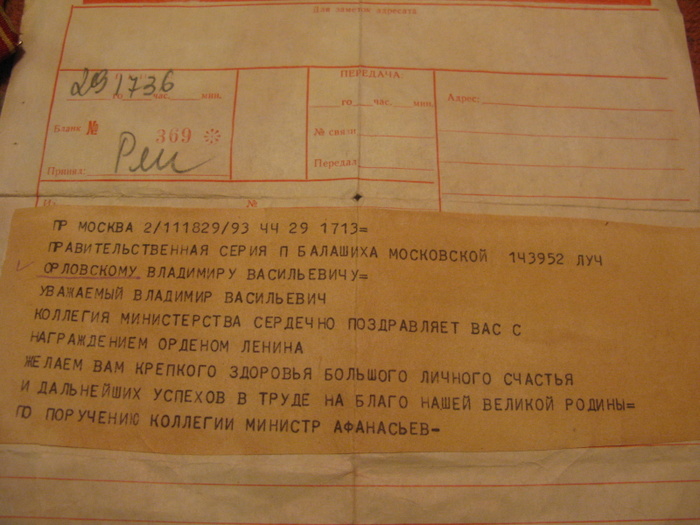 Для заметок адресата
29 1736
го час. мин.
Бланк № 369
Принял:
ПЕРЕДАЧА:
го час. мин.
№ связи
Передал
Адрес:
№
ПР МОСКВА 2/111829/93 ЧЧ 29 1713=
ПРАВИТЕЛЬСТВЕННАЯ СЕРИЯ П БАЛАШИХА МОСКОВСКОЙ 143952 ЛУЧ
ОРЛОВСКОМУ ВЛАДИМИРУ ВАСИЛЬЕВИЧУ=
УВАЖАЕМЫЙ ВЛАДИМИР ВАСИЛЬЕВИЧ
КОЛЛЕГИЯ МИНИСТЕРСТВА СЕРДЕЧНО ПОЗДРАВЛЯЕТ ВАС С
НАГРАЖДЕНИЕМ ОРДЕНОМ ЛЕНИНА
ЖЕЛАЕМ ВАМ КРЕПКОГО ЗДОРОВЬЯ БОЛЬШОГО ЛИЧНОГО СЧАСТЬЯ
И ДАЛЬНЕЙШИХ УСПЕХОВ В ТРУДЕ НА БЛАГО НАШЕЙ ВЕЛИКОЙ РОДИНЫ=
ПО ПОРУЧЕНИЮ КОЛЛЕГИИ МИНИСТР АФАНАСЬЕВ-